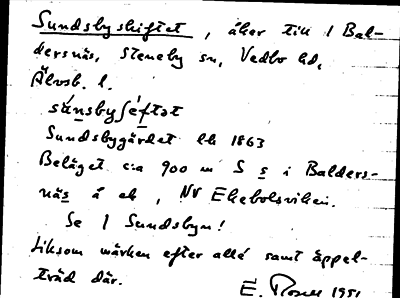 Sundsbyskiftet, åker till 1 Bal-
dersnäs, Steneby sn, Vedbo hd,
Älvsb. l.
Sundsbygärdet lk 1863
Beläget c:a 900 m S s i Balders-
näs å ek, NV Ekebolsviken.
Se 1 Sundsbyn!
liksom märken efter allé samt äppel-
träd där.
E. Rosell 1951